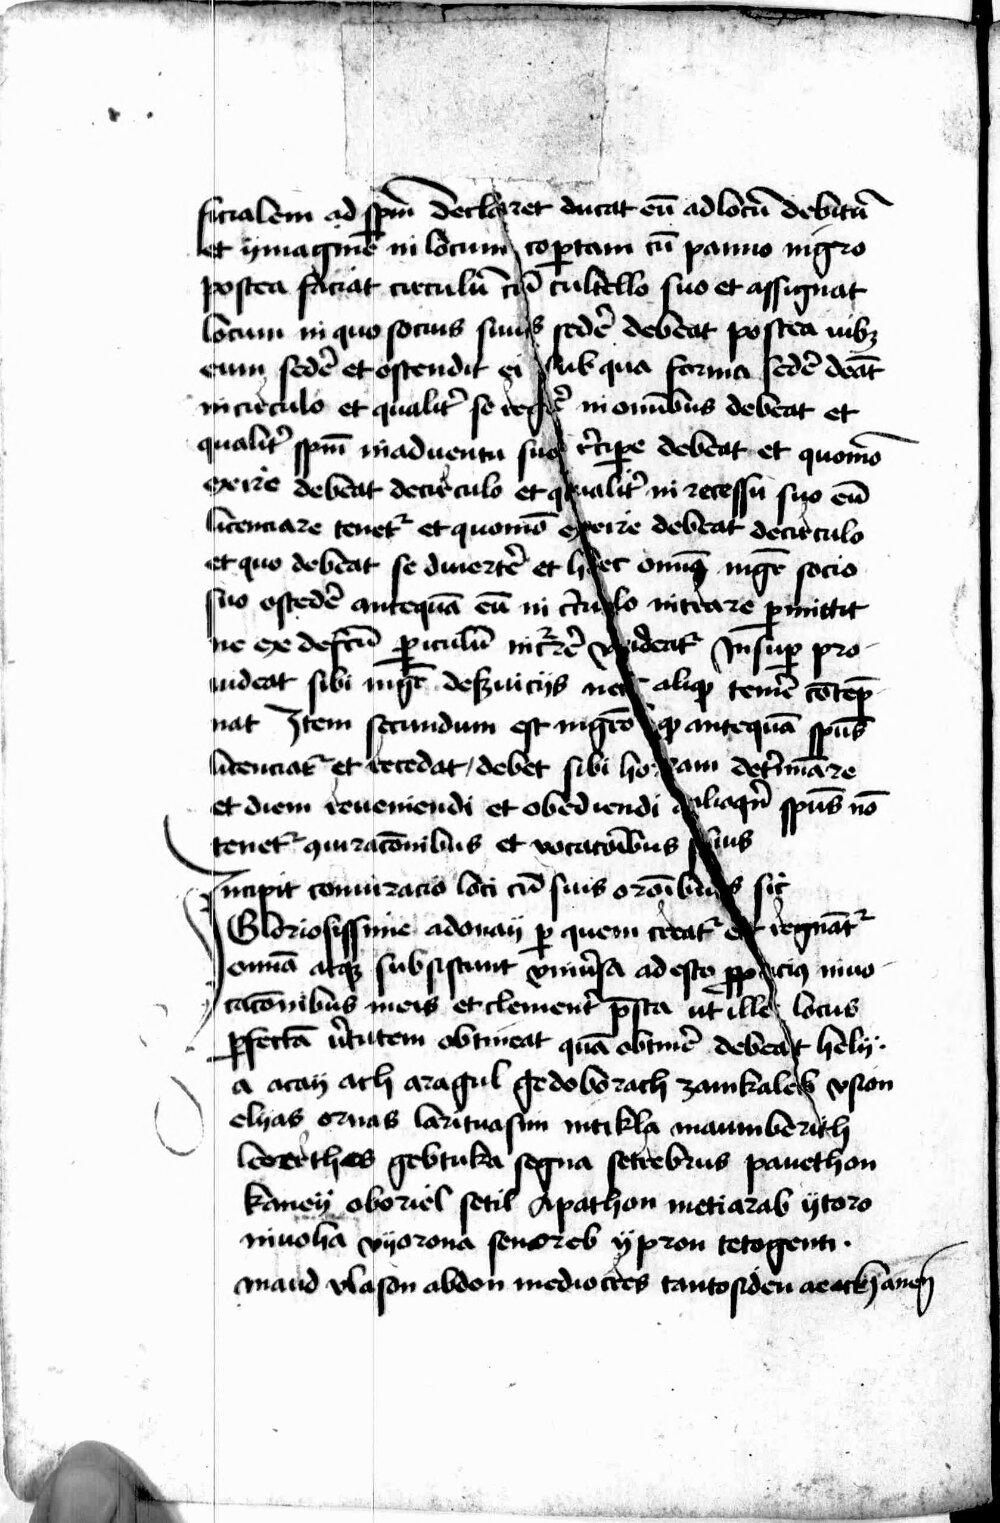 ficialem ad spm̄ declaret ducat eū ad locū debitū
et ymaginē in locum coptam cū panno nigro
postea faciat circulū cū cultello suo et assignat
locum in quo socius suus sedē debeat postea iubꝫ
eum sedē et ostendit ei sub qua forma sedē deāt
in circulo et qualit̄ se regē in om̄ibus debeat et
qualit̄ spm̄ in adventu suo rcipe debeat et quomō
exire debeat de circulo et qualit̄ in recessu suo eū
licenciare tenet᷑ et quomō exire debeat de circulo
et quo debeat se divertē et hec omīa mgr̄ socio
suo ostēdē antequā eū in circulo intrare ꝑmittit
ne ex defctū ꝑiculū incrē videat᷑ Insuꝑ pro-
uideat sibi mgr̄ de serviciis nec aliqͥ temē cōtep̄-
nat Item secundum est mgrō qͥ antequā spūs
licenciat᷑ et recedat / debet sibi horam det̄minare
et diem reveniendi et obediendi alioqn̄ spūs nō
tenet᷑ coniuracōnibus et vocacōibus suus
Incipit coniuracio loci cū suis orōibus sic̄
Gloriosissime adonay ꝑ quem creat᷑ et regnāt᷑
omnīa atqꝫ subsistunt vniūsa adesto ꝓpicius invo-
cacōnibus meis et clement̄ p̄sta ut ille locus
ꝑfectā v̄tutem obtineat quā obtinē debeat hely ·
a acay ach aragul gedoborach zamkaleb vsion
elyas ornas laritvasim intikla maumberith
gebtuka segna setrebrus pauethon
kaney oboriel setil Apathon metiarab ytoro
nivoha vyorona senoreb ypron tetogenti ·
maud vlason abdon mediocres tantosiden